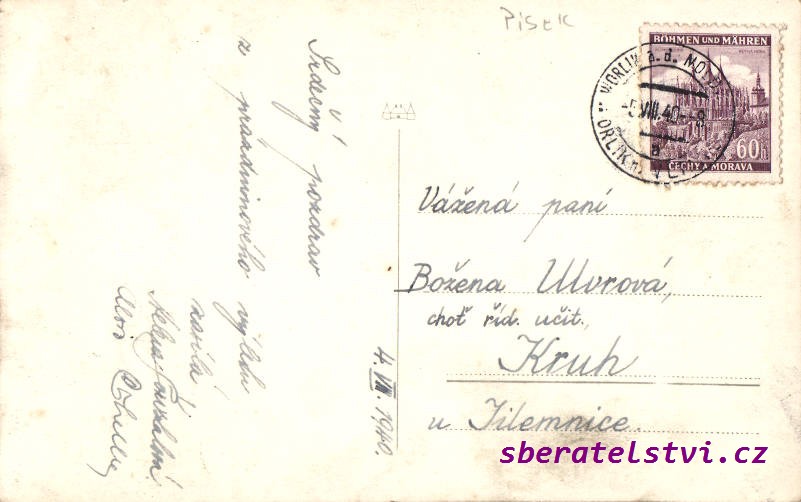 Písek
BÖHMEN UND MÄHREN
60h
ČECHY A MORAVA
WORLIK a.d.
VIII.40
8
a
ORLÍK n.
Srdečný pozdrav
z prázdninového výletu
4. VIII. 1940.
Vážená paní
Božena Ulvrová,
choť říd. učit.,
Kruh
u Jilemnice.
sberatelstvi.cz